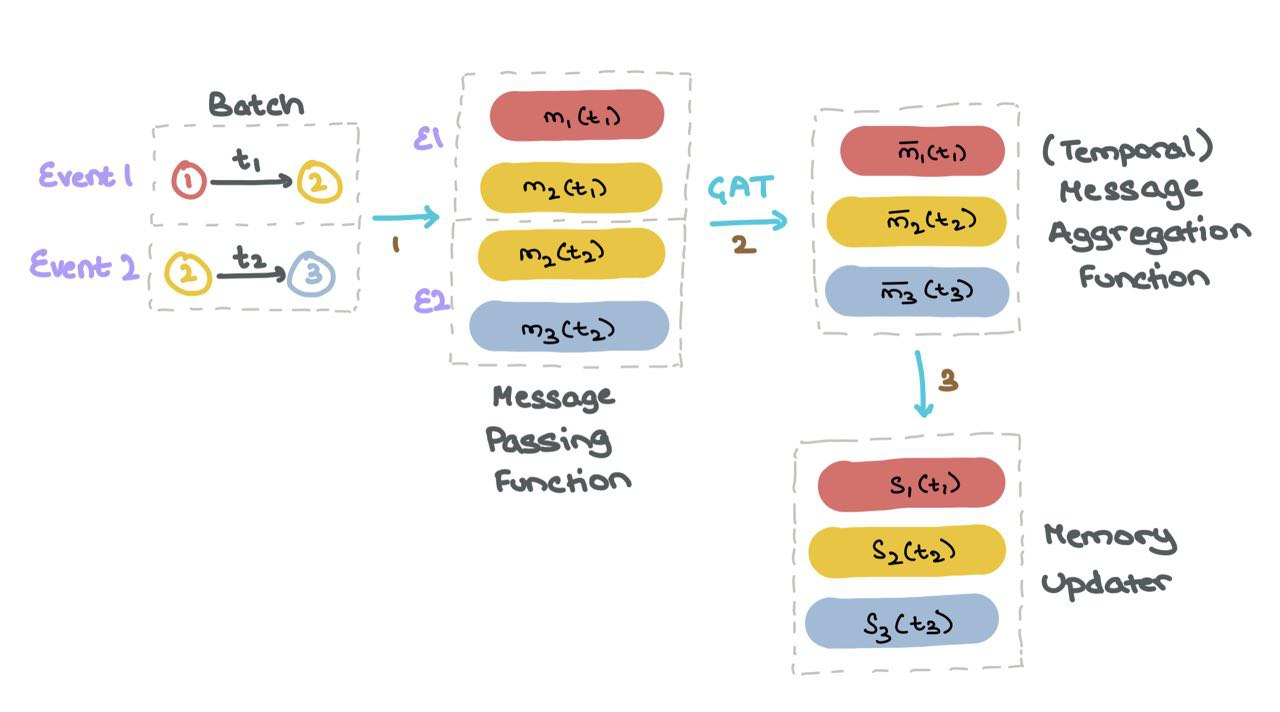 Batch
Event 1
1
t₁
2
Event 2
2
t₂
3
1
E1
m₁(t₁)
m₂(t₁)
E2
m₂(t₂)
m₃(t₂)
Message
Passing
Function
GAT
2
m̅₁(t₁)
m̅₂(t₂)
m̅₃(t₃)
(Temporal)
Message
Aggregation
Function
3
S₁(t₁)
S₂(t₂)
S₃(t₃)
Memory
Updater